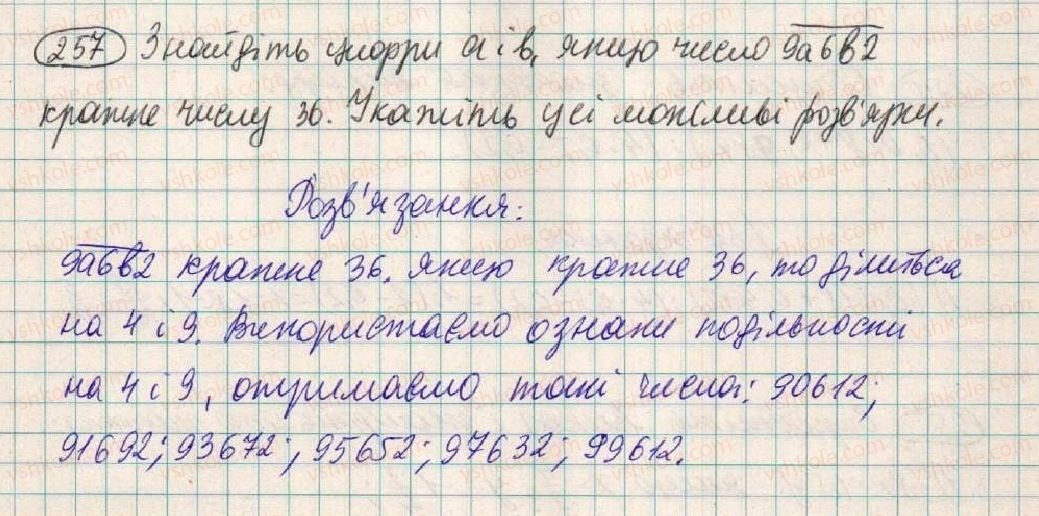 257 Знайдіть цифри a і b, якщо число 9a6b2
кратне числу 36. Укажіть усі можливі розв'язки.
Розв'язання:
9a6b2 кратне 36. Якщо кратне 36, то ділиться
на 4 і 9. Використаємо ознаки подільності
на 4 і 9, отримаємо такі числа: 90612;
91692; 93672; 95652; 97632; 99612.